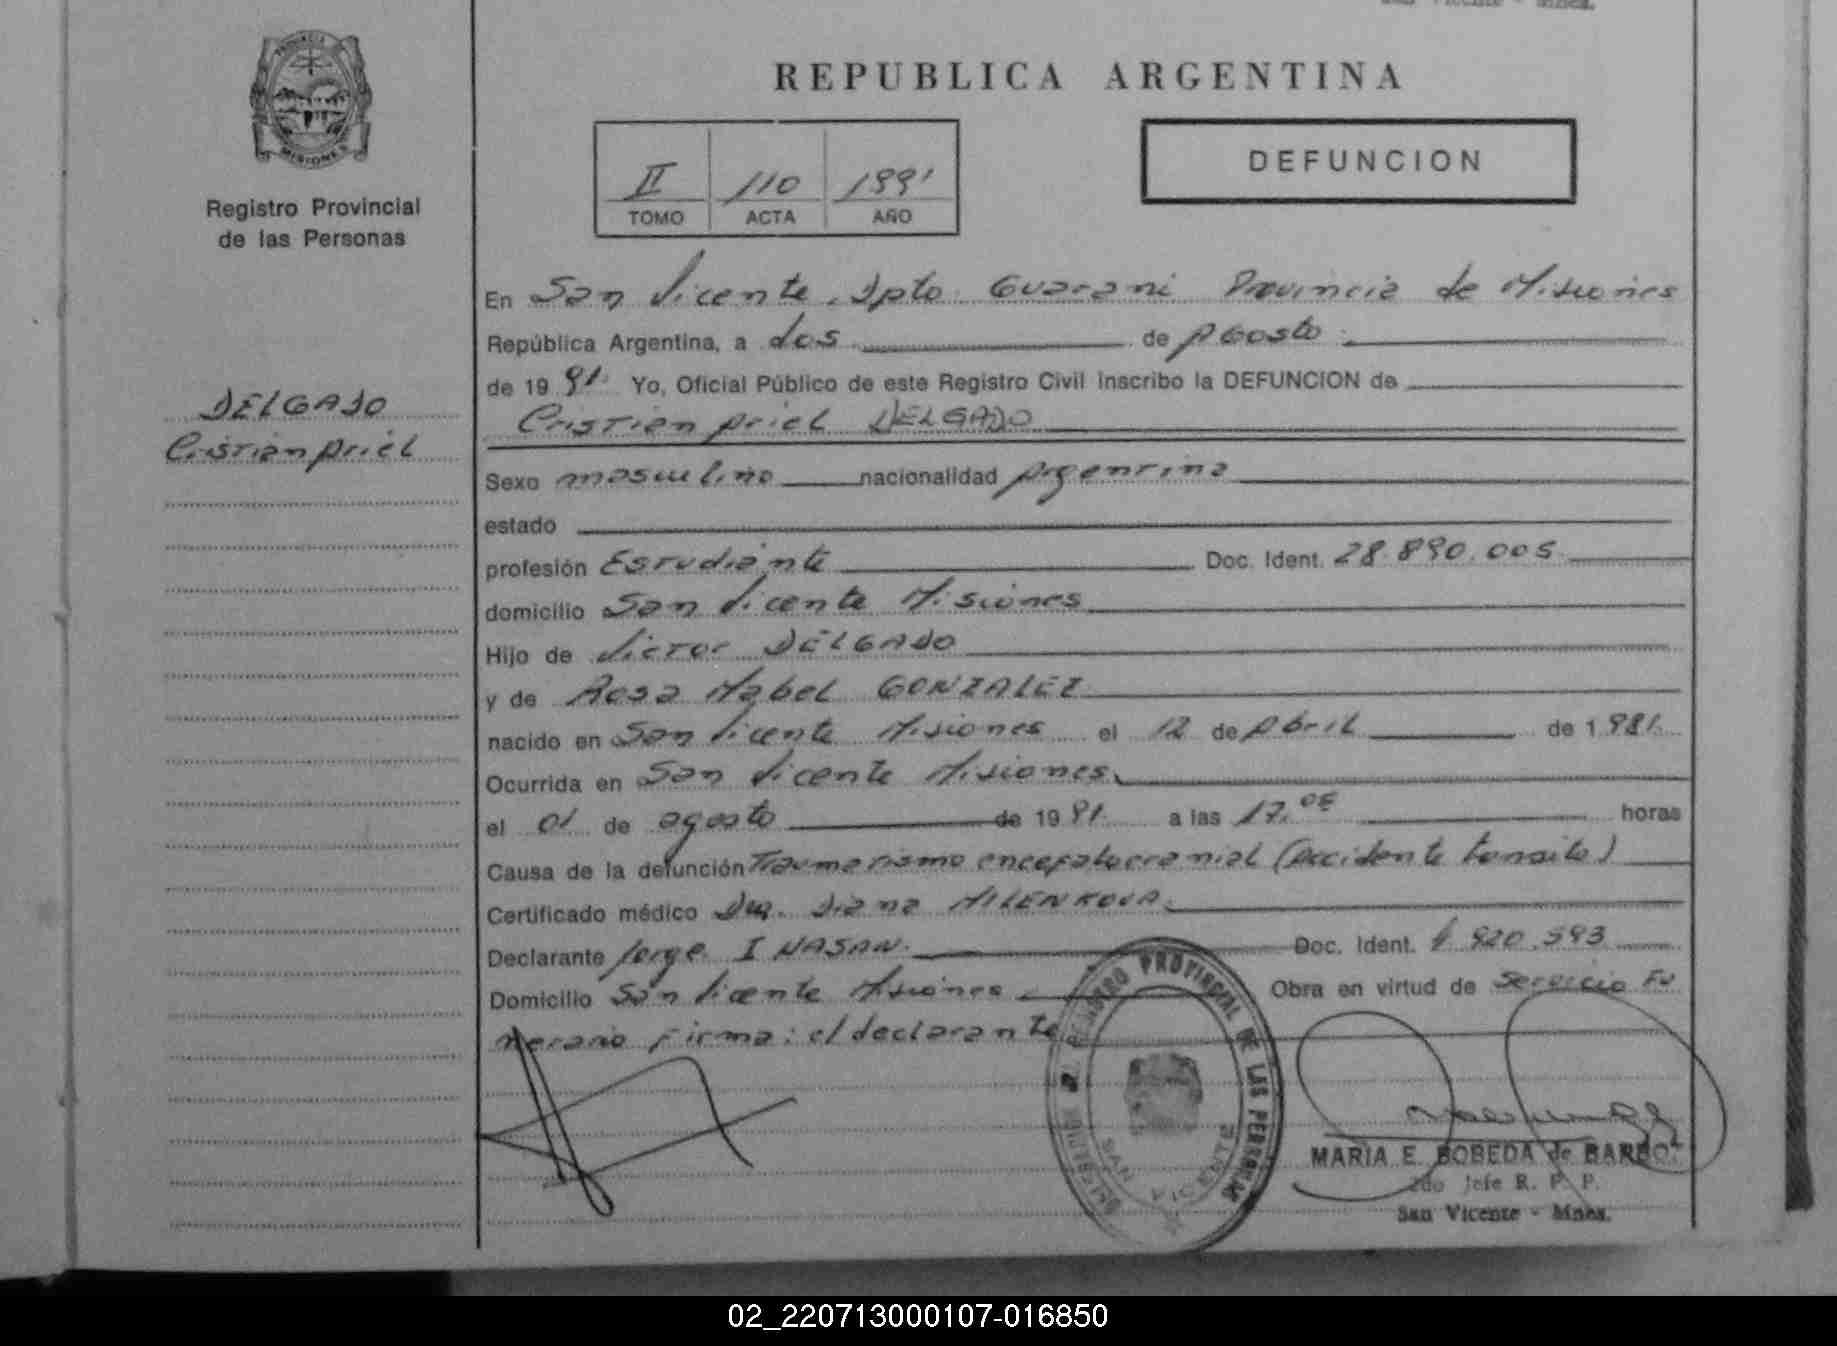 San Vicente - Mnes.
REPUBLICA ARGENTINA
PROVINCIA
MISIONES
Registro Provincial
de las Personas
II 110 1991
TOMO ACTA AÑO
DEFUNCION
En San Vicente, Dpto Guarani Provincia de Misiones
República Argentina, a dos de Agosto
de 1991. Yo, Oficial Público de este Registro Civil inscribo la DEFUNCION de
DELGADO
Cristian Ariel
Cristian Ariel DELGADO
Sexo masculino nacionalidad Argentina
estado
profesión Estudiante Doc. Ident. 28.890.005
domicilio San Vicente Misiones
Hijo de Victor DELGADO
y de Rosa Mabel GONZALEZ
nacido en San Vicente Misiones el 12 de Abril de 1.981.
Ocurrida en San Vicente Misiones
el 01 de agosto de 1991 a las 17,05 horas
Causa de la defunción Traumatismo encefalocranial (Accidente transito)
Certificado médico Dra. Diana MILENKOVA
Declarante Jorge I NASAN. Doc. Ident. 920.593
Domicilio San Vicente Misiones Obra en virtud de Servicio Fu
nerario Firma: el declarante
REGISTRO PROVINCIAL DE LAS PERSONAS
SAN VICENTE
MISIONES
MARIA E. BOBEDA de BARBO
2do Jefe R. P. P.
San Vicente - Mnes.
02_220713000107-016850